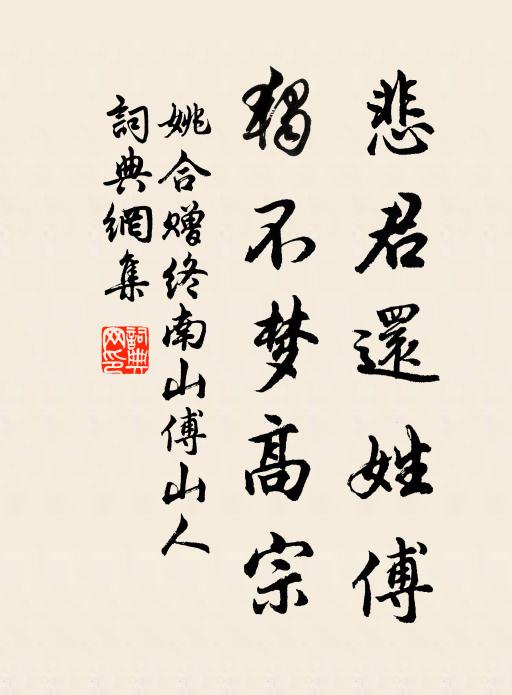 悲君還姓傅
獨不梦高宗
姚合赠终南山傅山人
詞典網集
詞典网印